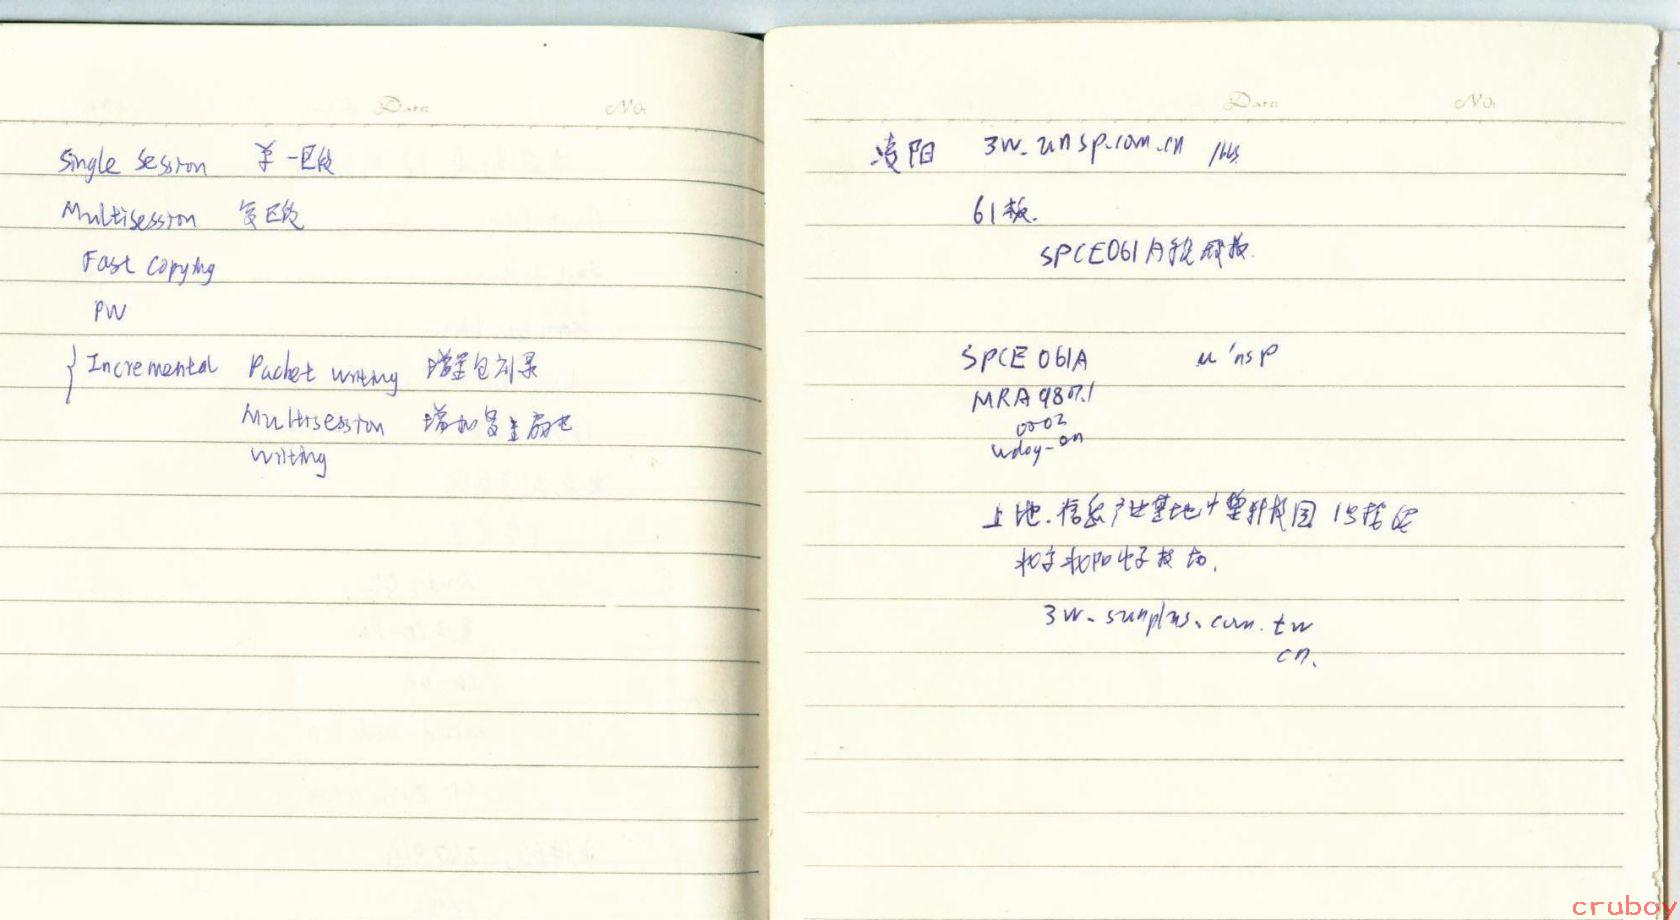 Date No.
Single Session 单一区段
Multisession 复区段
Fast Copying
PW
Incremental Packet writing 增量包刻录
Multisession 增加复
writing
Date No.
凌阳 3w.unsp.com.cn /bbs
61板.
SPCE061A
SPCE 061A u'nsp
MRA987.1
0002
上地.信息产业基地 园 1号
电子
3w.sunplus.com.tw
cn.
cruboy